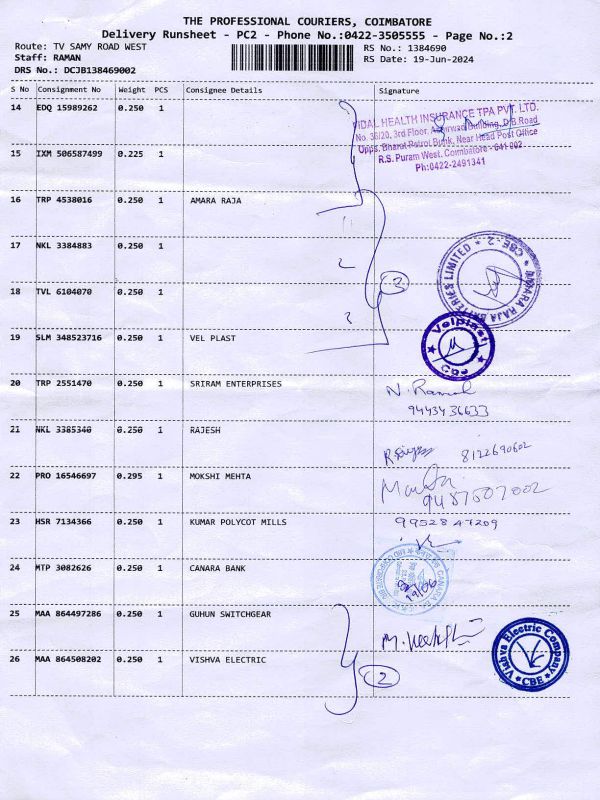 THE PROFESSIONAL COURIERS, COIMBATORE
Delivery Runsheet - PC2 - Phone No.:0422-3505555 - Page No.:2
Route: TV SAMY ROAD WEST
RS No.: 1384690
Staff: RAMAN
RS Date: 19-Jun-2024
DRS No.: DCJB138469002
S No Consignment No Weight PCS Consignee Details Signature
14 EDQ 15989262 0.250 1
VIDAL HEALTH INSURANCE TPA PVT. LTD.
No. 36/20, 3rd Floor, Agarwal Building, D.B Road
Opps. Bharat Petrol Bunk, Near Head Post Office
R.S. Puram West, Coimbatore - 641 002
Ph:0422-2491341
15 IXM 506587499 0.225 1
16 TRP 4538016 0.250 1 AMARA RAJA
17 NKL 3384883 0.250 1
2
AMARA RAJA BATTERIES LIMITED * CBE-2 *
3
18 TVL 6104070 0.250 1
19 SLM 348523716 0.250 1 VEL PLAST
Velplast
Cbe
20 TRP 2551470 0.250 1 SRIRAM ENTERPRISES
N. Ramal
9443436633
21 NKL 3385340 0.250 1 RAJESH
8122690602
22 PRO 16546697 0.295 1 MOKSHI MEHTA
9487507002
23 HSR 7134366 0.250 1 KUMAR POLYCOT MILLS
9952847209
24 MTP 3082626 0.250 1 CANARA BANK
19/06
25 MAA 864497286 0.250 1 GUHUN SWITCHGEAR
26 MAA 864508202 0.250 1 VISHVA ELECTRIC
Vishva Electric Company
CBE
2